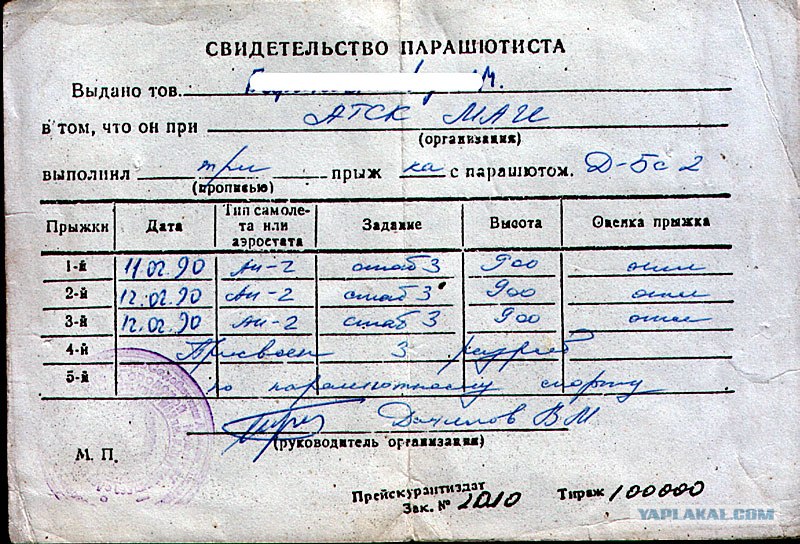 СВИДЕТЕЛЬСТВО ПАРАШЮТИСТА
Выдано тов.
в том, что он при АТСК МАГИ
(организация)
выполнил три прыж ка с парашютом. Д-5с2
(прописью)
Прыжки Дата Тип самолета или аэростата Задание Высота Оценка прыжка
1-й 11.02.90 Ан-2 стаб 3 900 отл
2-й 12.02.90 Ан-2 стаб 3 900 отл
3-й 12.02.90 Ан-2 стаб 3 900 отл
4-й Присвоен 3 разряд
5-й по парашютному спорту
Данилов В М
(руководитель организации)
М. П.
Прейскурантиздат
Зак. № 2010 Тираж 100000
YAPLAKAL.COM